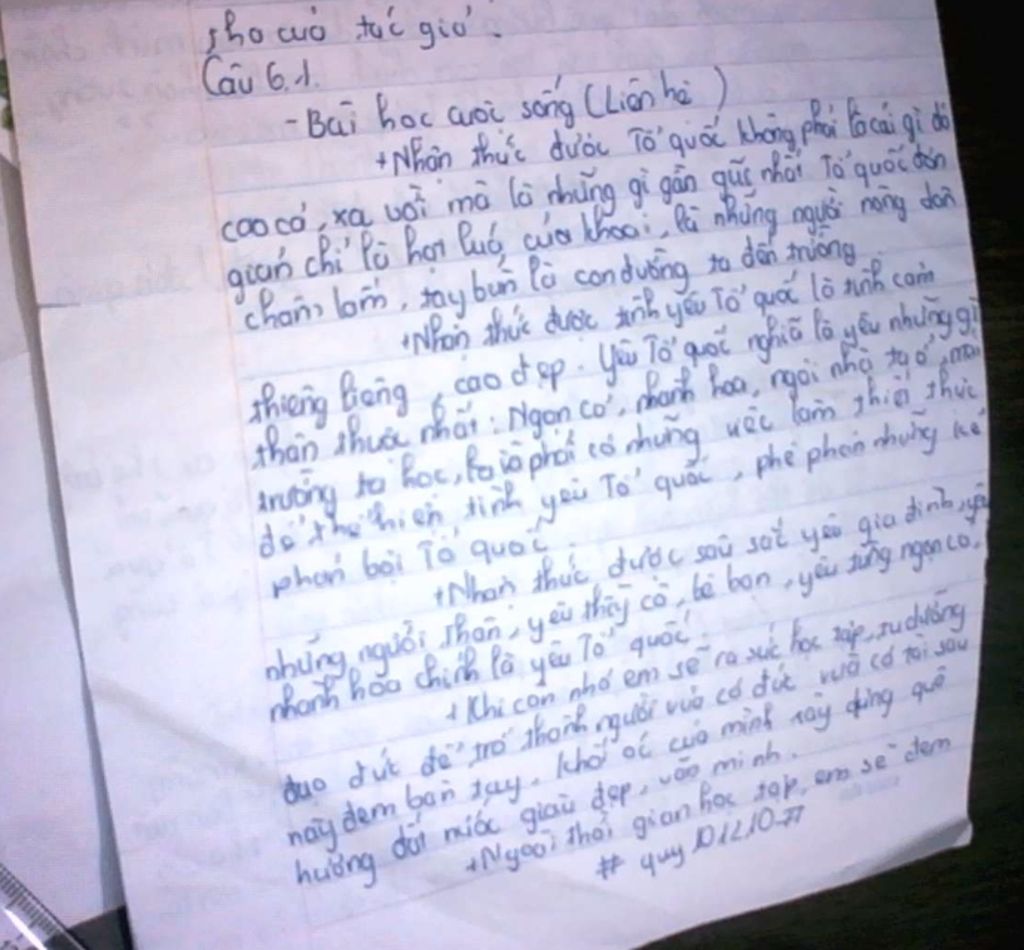 thơ của tác giả.
Câu 6.1.
- Bài học cuộc sống (Liên hệ)
+ Nhận thức được Tổ quốc không phải là cái gì đó
cao cả, xa vời mà là những gì gần gũi nhất Tổ quốc đơn
giản chỉ là hạt lúa, củ khoai, là những người nông dân
chân lấm, tay bùn là con đường ta đến trường
+ Nhận thức được tình yêu Tổ quốc là tình cảm
thiêng liêng, cao đẹp. Yêu Tổ quốc nghĩa là yêu những gì
thân thuộc nhất: Ngọn cỏ, nhành hoa, ngôi nhà ta ở, mái
trường ta học, phải có những việc làm thiết thực
để thể hiện tình yêu Tổ quốc, phê phán những kẻ
phản bội Tổ quốc.
+ Nhận thức được sâu sắc yêu gia đình, yêu
những người thân, yêu thầy cô, bè bạn, yêu từng ngọn cỏ,
nhành hoa chính là yêu Tổ quốc.
+ Khi còn nhỏ em sẽ ra sức học tập, tu dưỡng
đạo đức để trở thành người vừa có đức vừa có tài sau
này đem bàn tay, khối óc của mình xây dựng quê
hương đất nước giàu đẹp, văn minh.
+ Ngoài thời gian học tập, em sẽ đem
# quy D12.10.A7